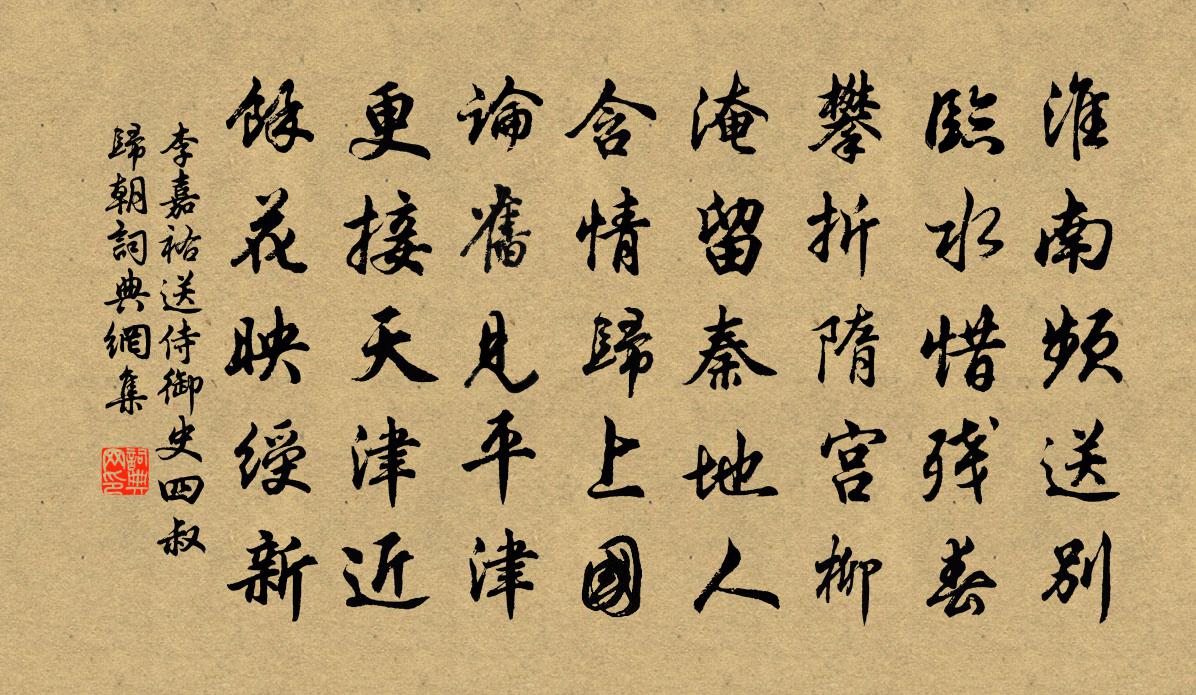 淮南頻送別
臨水惜殘春
攀折隋宮柳
淹留秦地人
含情歸上國
論舊見平津
更接天津近
餘花映綬新
李嘉祐送侍御史四叔
歸朝詞典網集
詞典網印